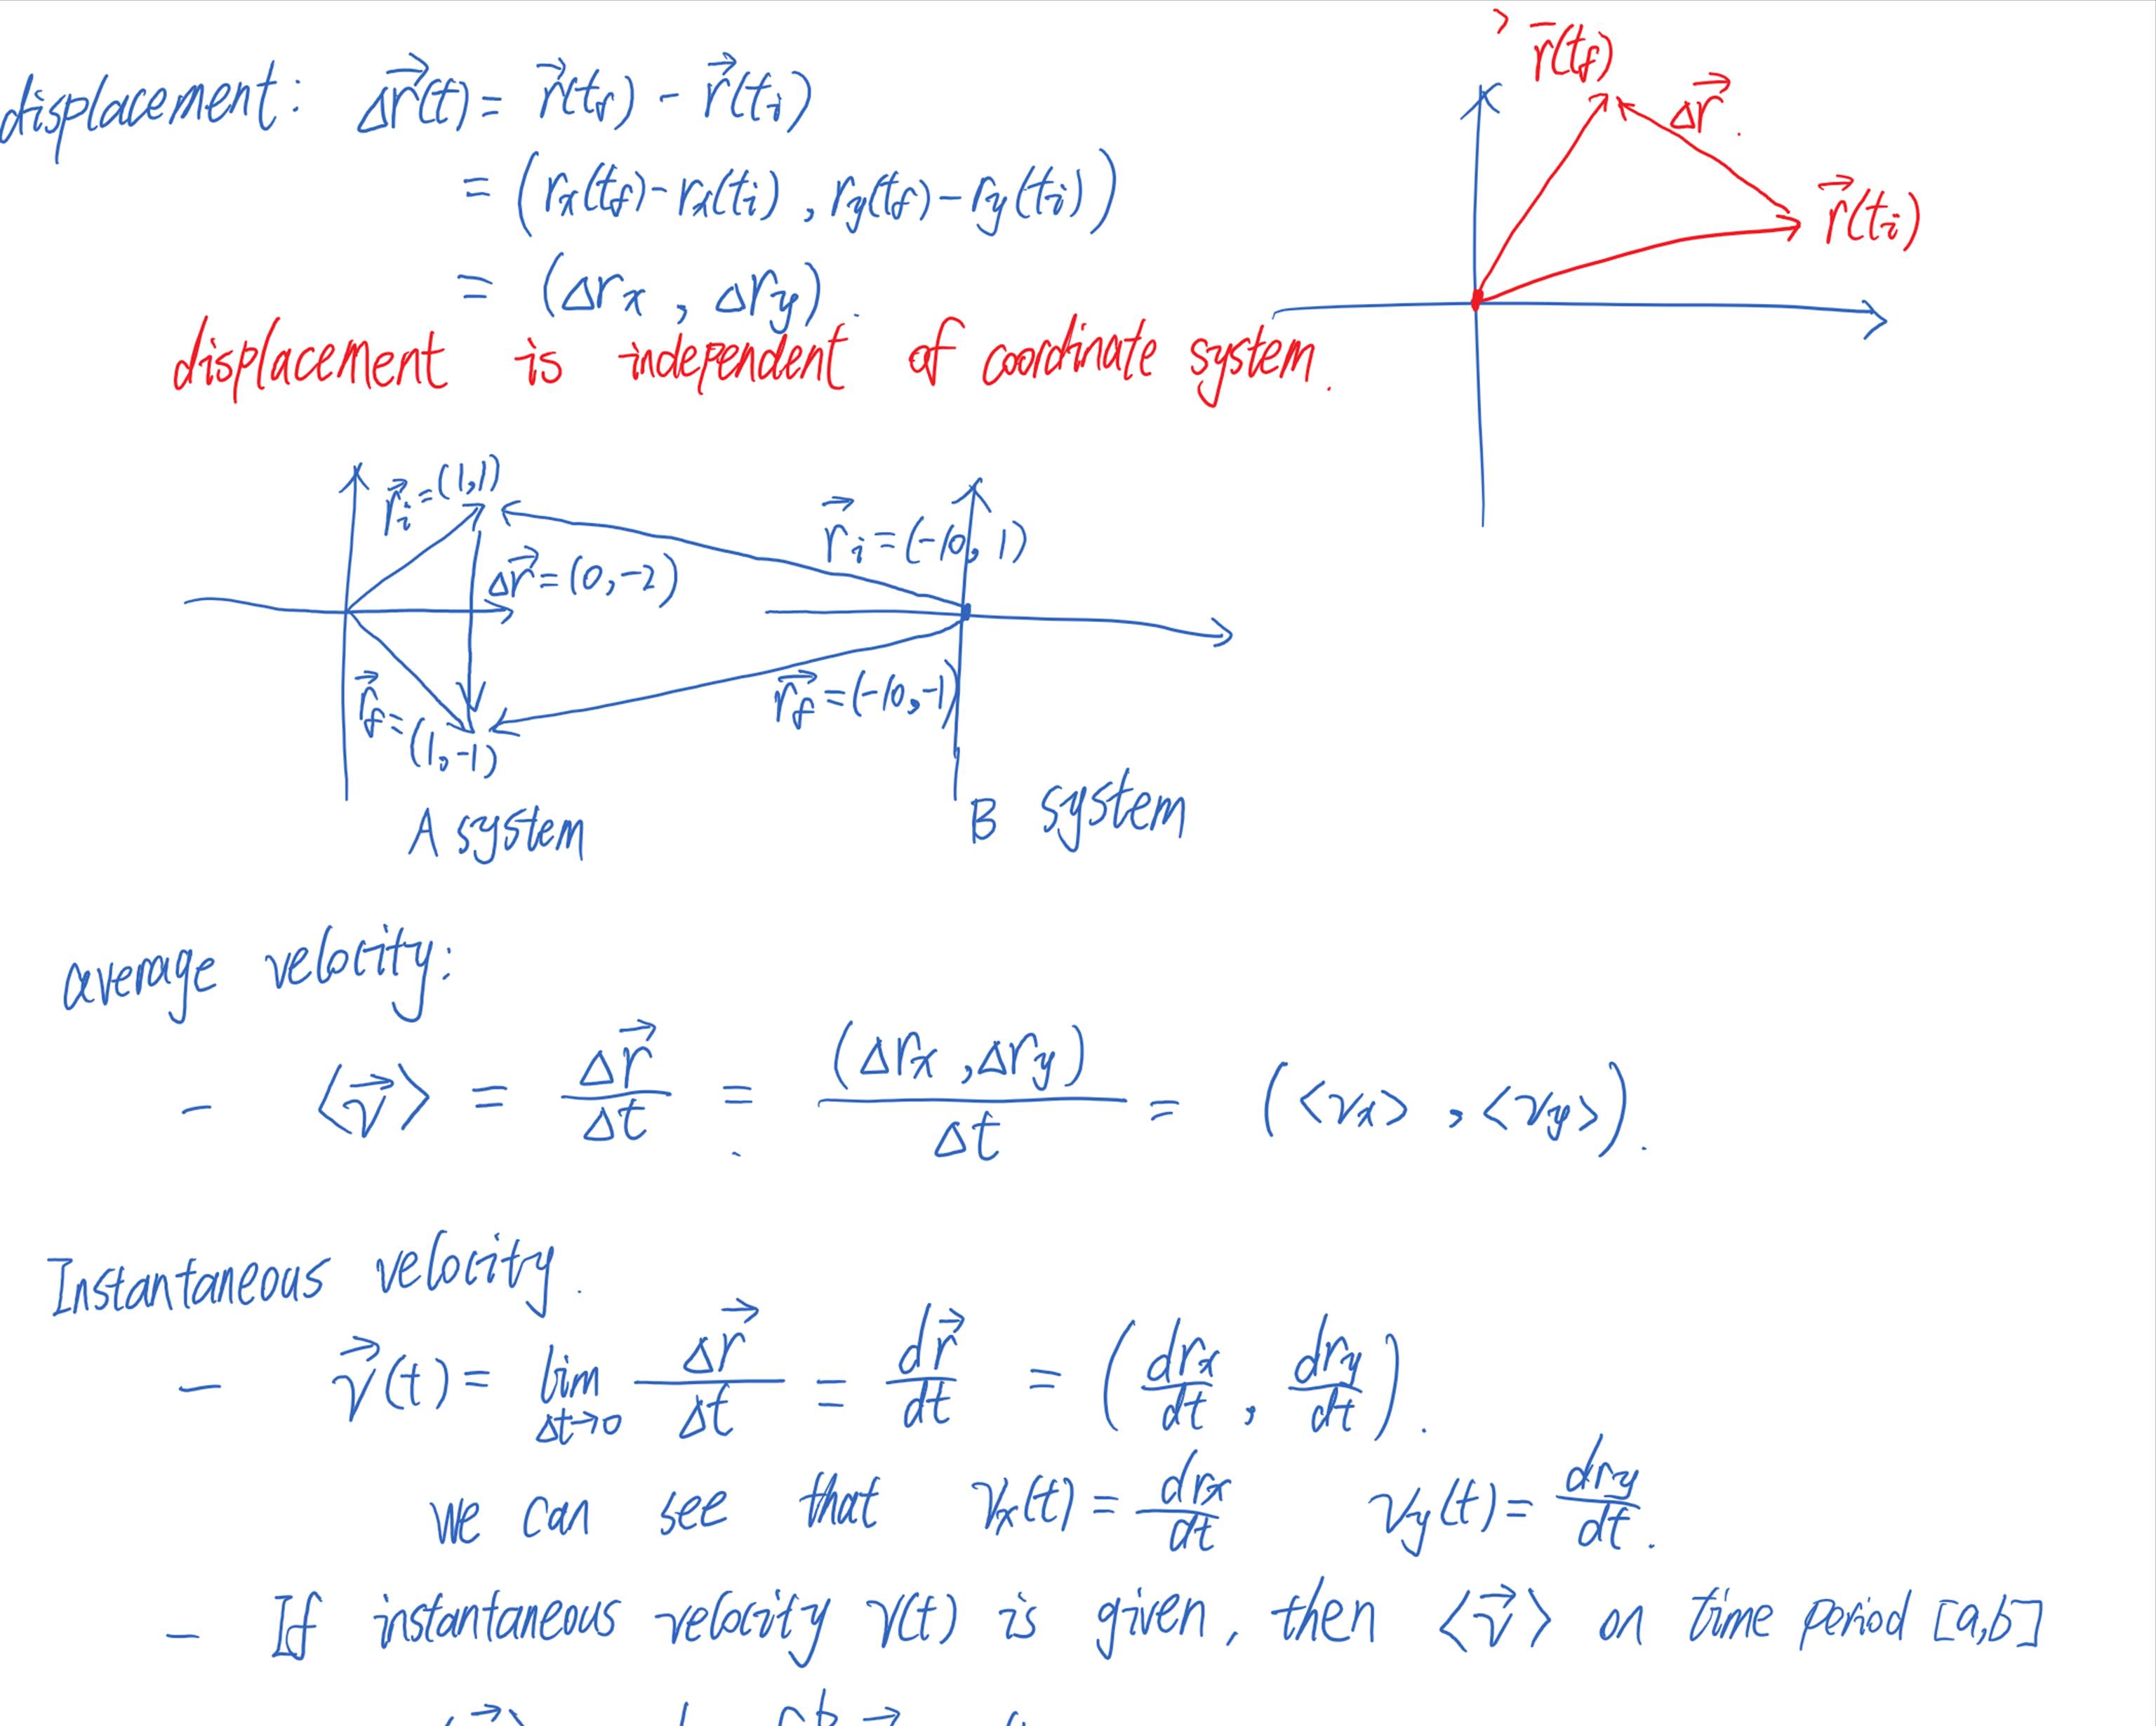 displacement: Δr⃗(t) = r⃗(tf) - r⃗(ti)
= (rx(tf)-rx(ti), ry(tf)-ry(ti))
= (Δrx, Δry).
r⃗(tf)
Δr⃗.
r⃗(ti)
displacement is independent of coordinate system.
r⃗i=(1,1)
Δr⃗=(0,-2)
r⃗f=(1,-1)
A system
r⃗i=(-10, 1)
r⃗f=(-10,-1)
B system
average velocity:
- <v⃗> = Δr⃗/Δt = (Δrx,Δry)/Δt = (<vx>, <vy>).
Instantaneous velocity.
- v⃗(t) = lim Δt→0 Δr⃗/Δt = dr⃗/dt = (drx/dt, dry/dt).
we can see that vx(t) = drx/dt vy(t) = dry/dt.
- If instantaneous velocity v(t) is given, then <v⃗> on time period [a,b]